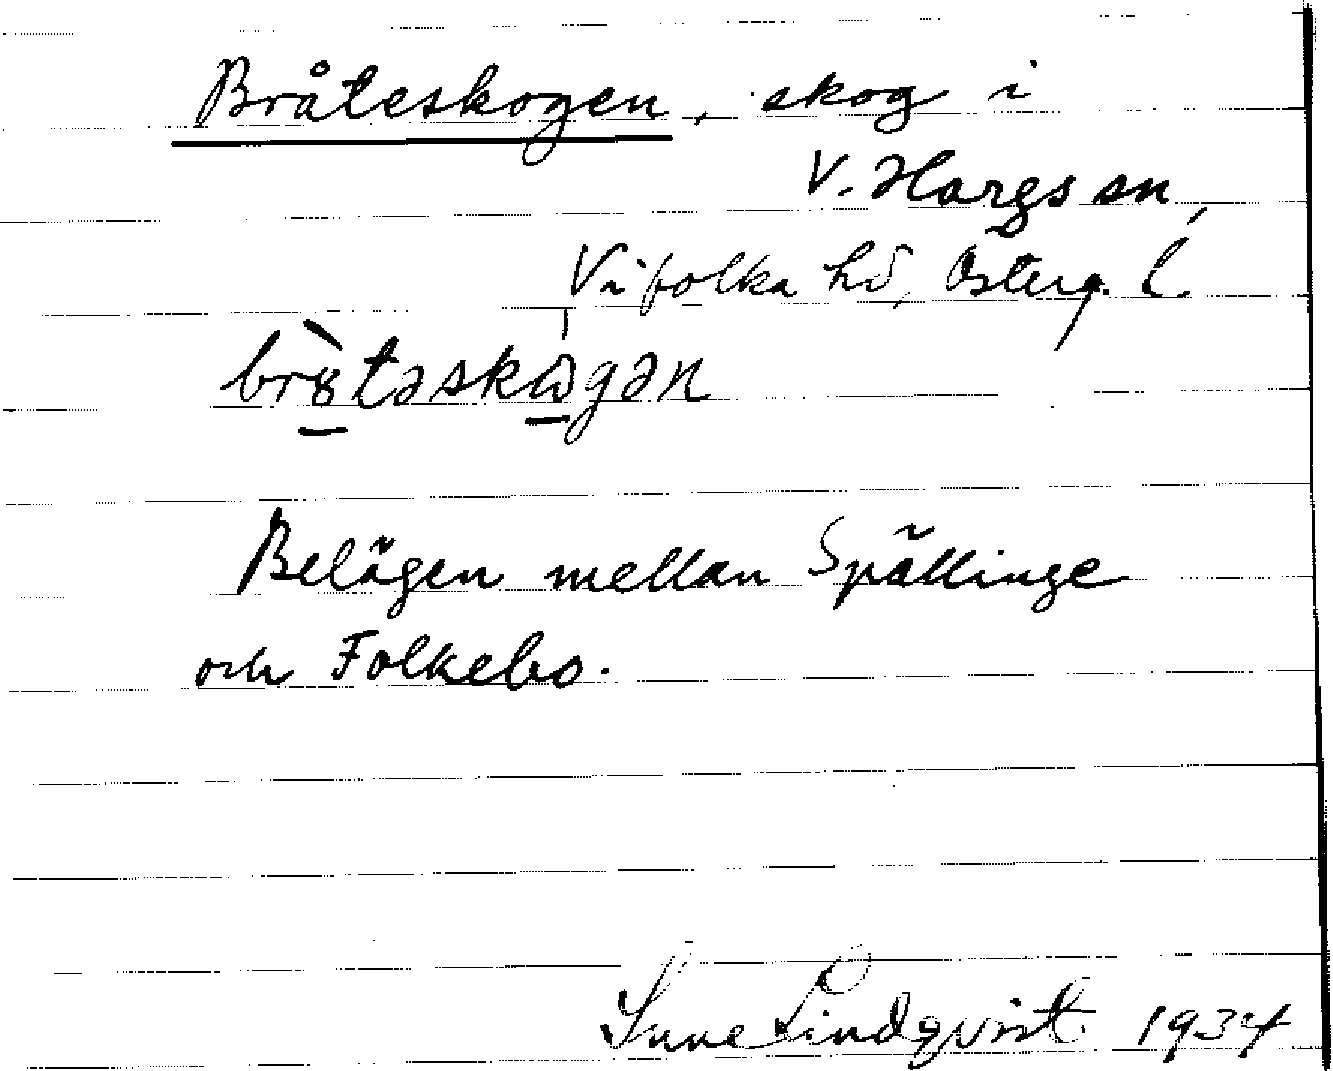 Bråteskogen, skog i
V. Hargs sn,
Vifolka hd, Österg. l.
br8̀təskὼgən
Belägen mellan Spällinge
och Folkebo.
Sune Lindqvist 1934